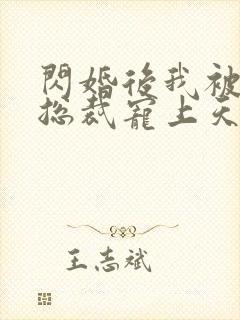 閃婚後我被
總裁寵上天
王志斌